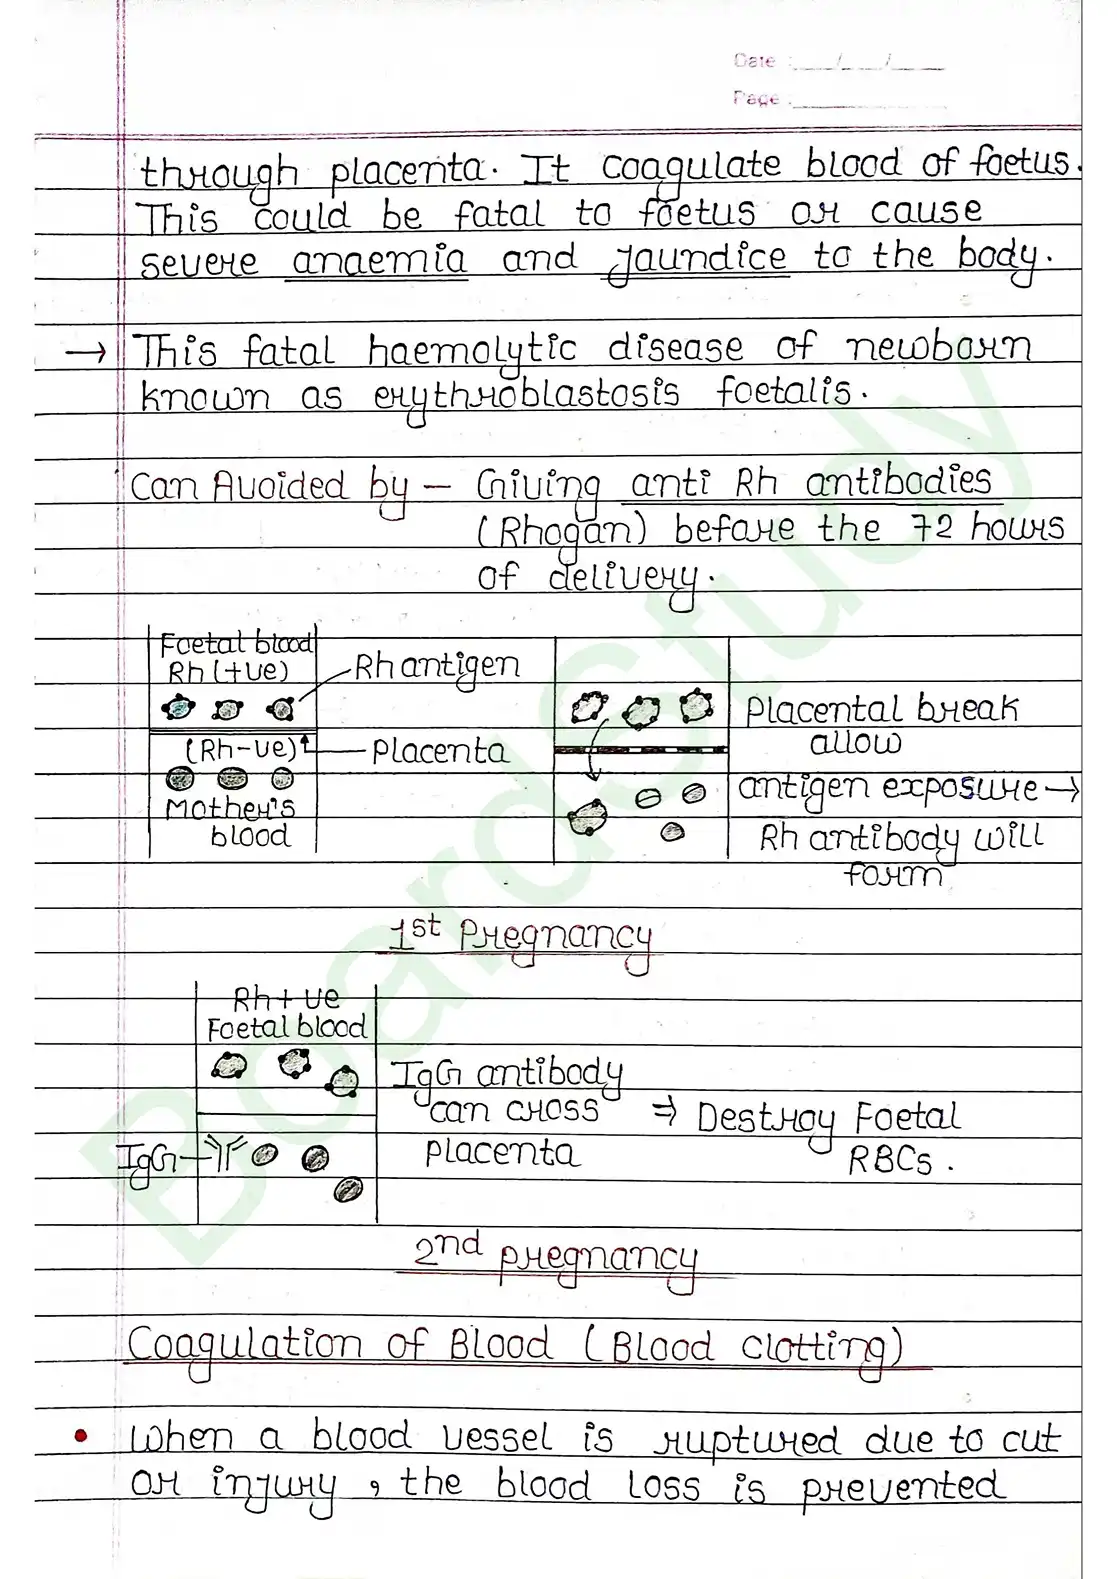 Date : ___/___/___
Page : ___
through placenta. It coagulate blood of foetus.
This could be fatal to foetus or cause
severe anaemia and jaundice to the body.
→ This fatal haemolytic disease of newborn
known as erythroblastosis foetalis.
Can Avoided by — Giving anti Rh antibodies
(Rhogan) before the 72 hours
of delivery.
Foetal blood
Rh (+ve)
Rh antigen
(Rh-ve)
Placenta
Mother's
blood
Placental break
allow
antigen exposure →
Rh antibody will
form
1st Pregnancy
Rh+ve
Foetal blood
IgG
IgG antibody
can cross
placenta
⇒ Destroy Foetal
RBCs.
2nd pregnancy
Coagulation of Blood (Blood clotting)
• When a blood vessel is ruptured due to cut
or injury, the blood loss is prevented
BoardStudy